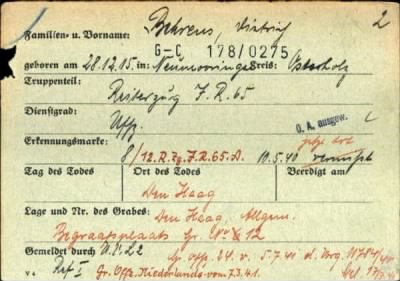 2
Familien- u. Vorname: Behrens, Dietrich
G-C 178/0275
geboren am 28.12.15 in: Neumooringen Kreis: Osterholz
Truppenteil: Reiterzug J.R. 65
Dienstgrad: Uffz.
O. A. ausgew.
Erkennungsmarke: jetzt tot
8/12.R.Zg.J.R.65.A. 11.5.40 vermißt
Tag des Todes Ort des Todes Beerdigt am
Den Haag
Lage und Nr. des Grabes: Den Haag, Allgem.
Begraafplaats Gr. 12
Gemeldet durch Gr. Offz. 24. v. 5.7.40
V 4 Ref I Gr. Offz. Niederlande vom 7.3.41.